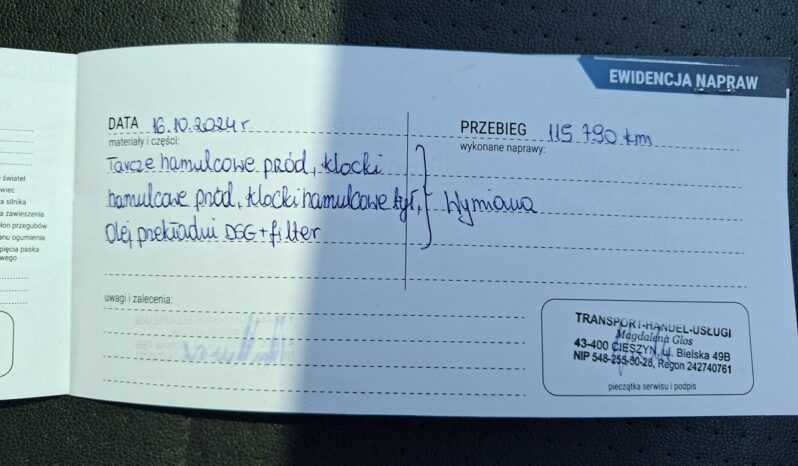 EWIDENCJA NAPRAW
DATA 16.10.2024r
PRZEBIEG 115 790 km
materiały i części:
wykonane naprawy:
Tarcze hamulcowe przód, klocki
hamulcowe przód, klocki hamulcowe tył, Wymiana
Olej przekładni DSG + filter
uwagi i zalecenia:
TRANSPORT-HANDEL-USŁUGI
Magdalena Glos
43-400 CIESZYN, ul. Bielska 49B
NIP 548-255-50-28, Regon 242740761
pieczątka serwisu i podpis
świateł
wiec
a silnika
a zawieszenia
łon przegubów
anu ogumienia
pięcia paska
wego